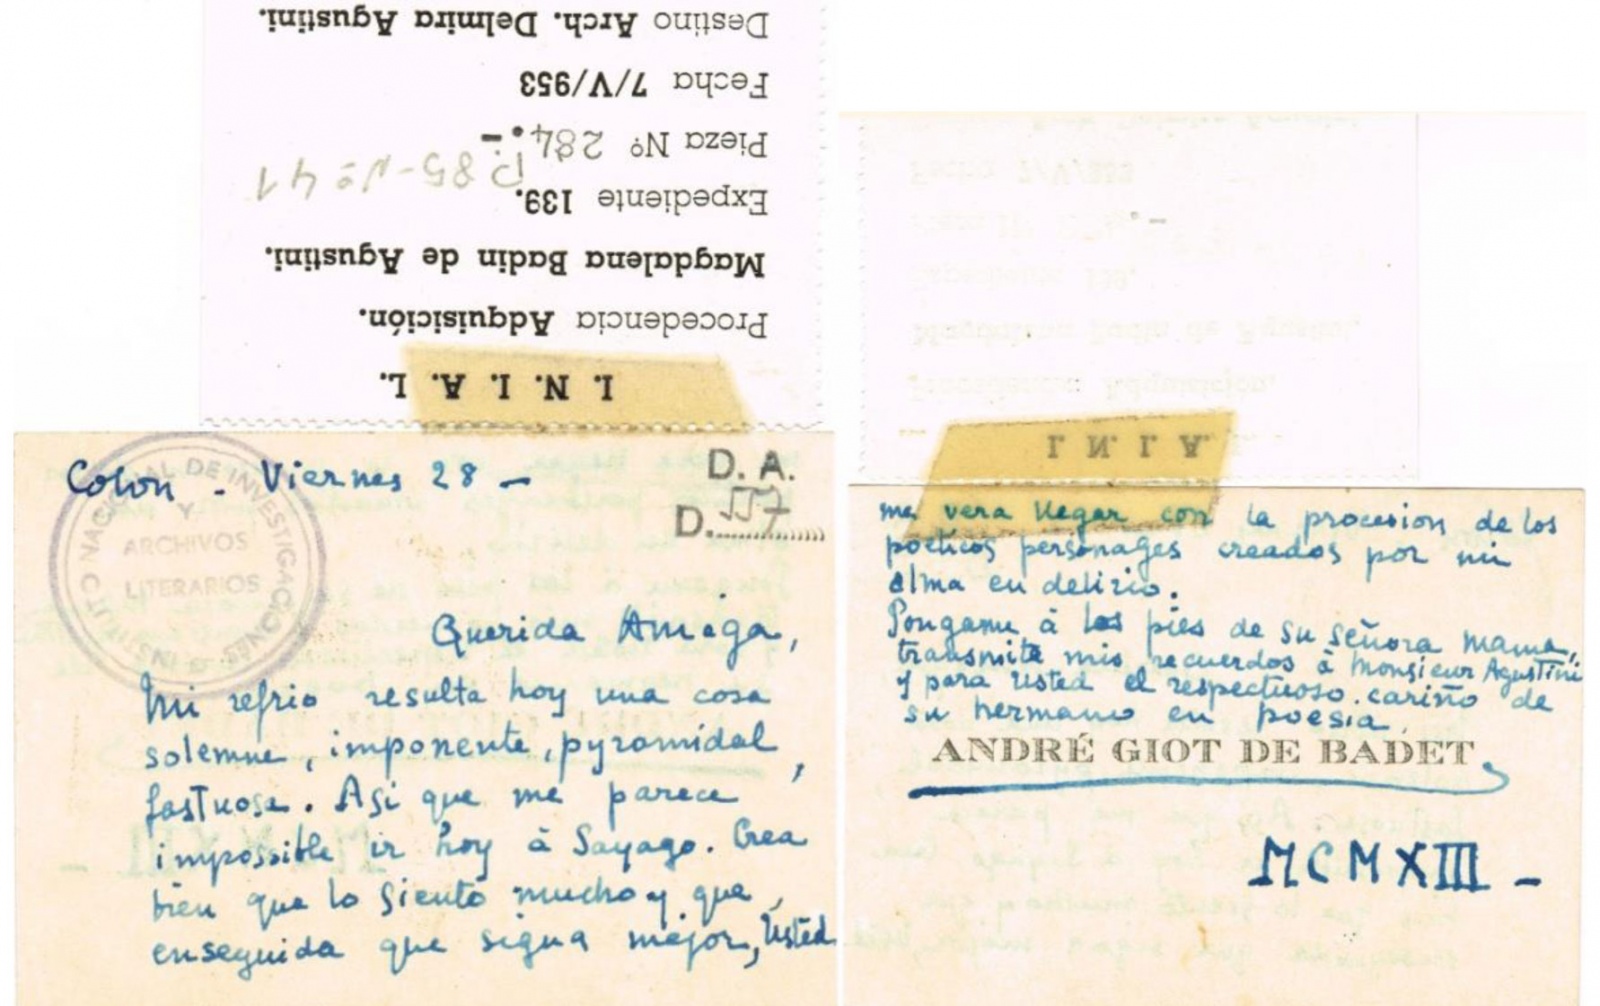 I. N. I. A. L.
Procedencia Adquisición.
Magdalena Badin de Agustini.
Expediente 139.
P.85-Nº 41
Pieza Nº 284.-
Fecha 7/V/953
Destino Arch. Delmira Agustini.
INSTITUTO NACIONAL DE INVESTIGACIONES
Y
ARCHIVOS
LITERARIOS
D. A.
D.
Colon - Viernes 28 -
Querida Amiga,
Mi refrio resulta hoy una cosa
solemne, imponente, pyramidal,
fastuosa. Asi que me parece
impossible ir hoy à Sayago. Crea
bien que lo siento mucho y que,
enseguida que sigua mejor, Usted
me vera llegar con la procesion de los
poeticos personages creados por mi
alma en delirio.
Pongame à los pies de su señora mama,
transmite mis recuerdos à Monsieur Agustini
y para Usted el respectuoso cariño de
su hermano en poesia
ANDRÉ GIOT DE BADET
MCMXIII -